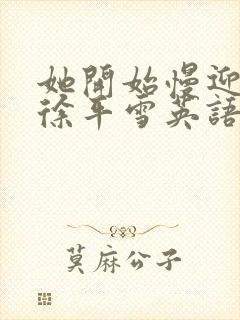 她開始慢迎
徐平雪英語
莫麻公子